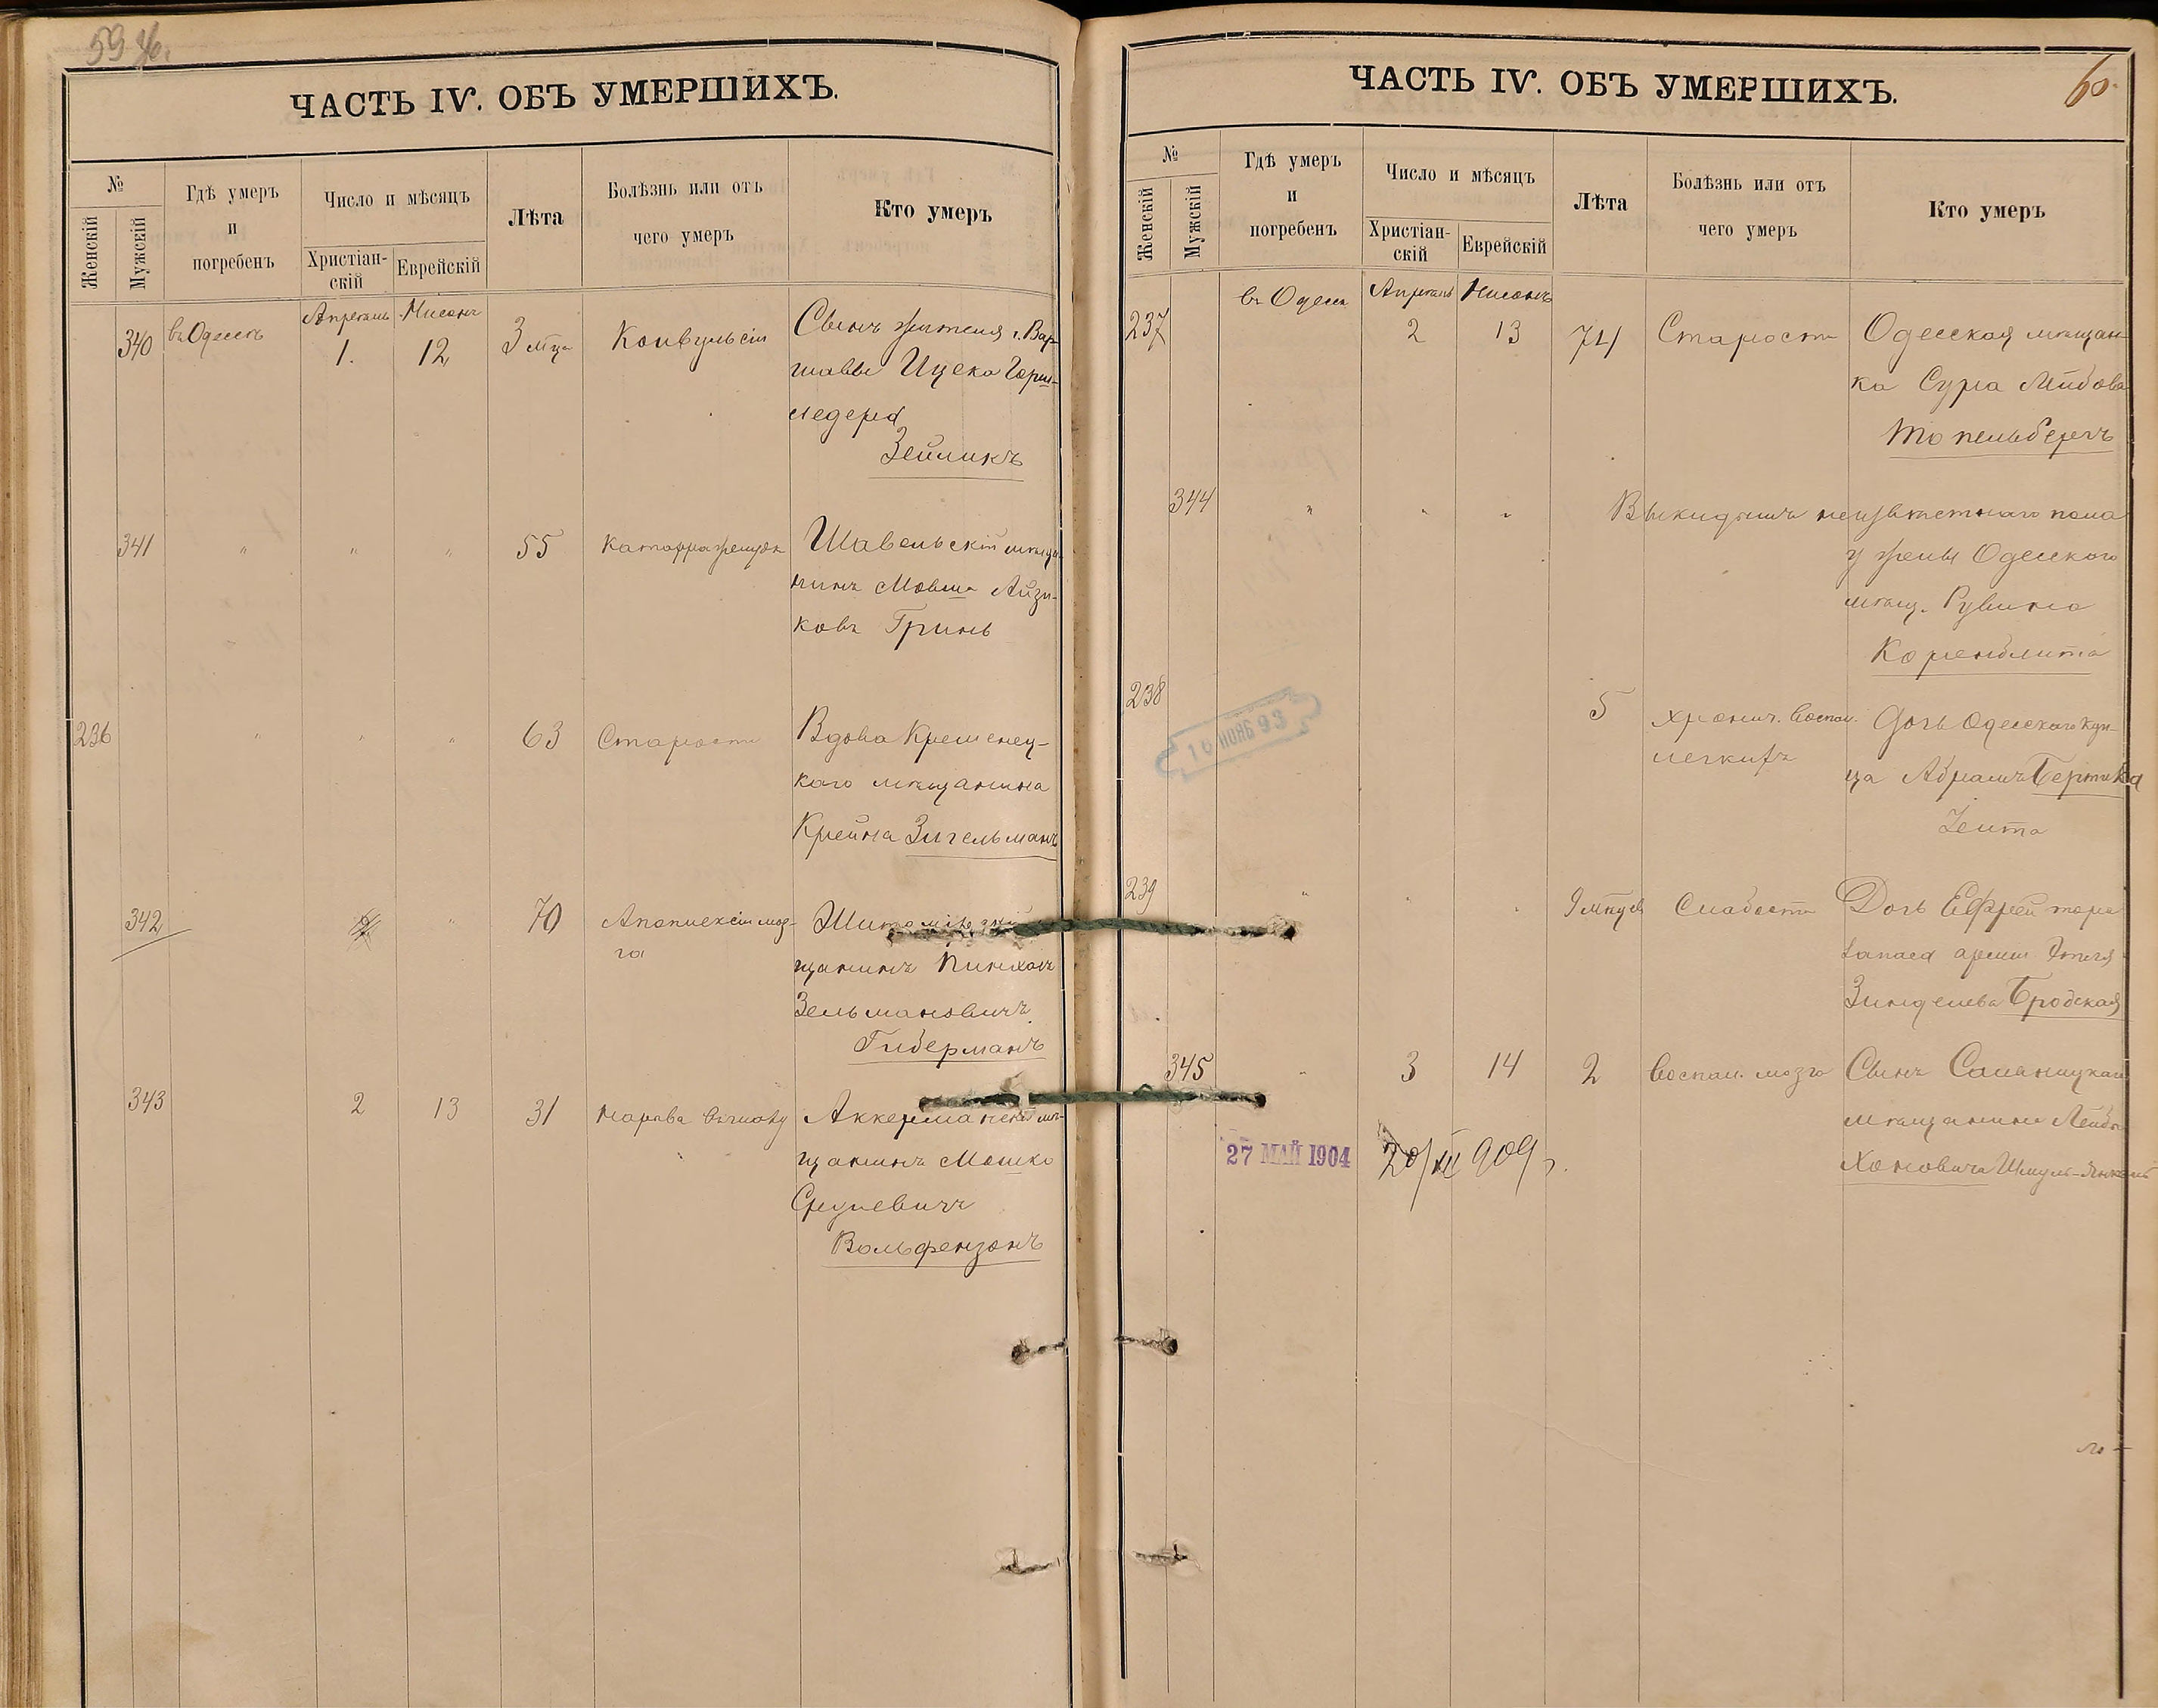 ЧАСТЬ IV. ОБЪ УМЕРШИХЪ.
№
Женскій
Мужскій
Гдѣ умеръ
и
погребенъ
Число и мѣсяцъ
Христіан-
скій
Еврейскій
Лѣта
Болѣзнь или отъ
чего умеръ
Кто умеръ
340 въ Одессѣ Апрѣль 1. Нисонъ 12 3 мѣс Конвульсіи Сынъ жителя г. Вар-
шавы Ицека Гарш-
ледера
Зейликъ
341 " " " 55 Катарра желудк Шавельскій мѣща-
нинъ Мовша Айзи-
ковъ Гринь
236 " " " 63 Старости Вдова Кременец-
каго мѣщанина
Крейна Зигельманъ
342 " 70 Апоплексіи моз-
га
щанинъ Пинхасъ
Зельмановичъ
Гиберманъ
343 2 13 31 Аккерманскій мѣ-
щанинъ Мошко
Сруливичъ
Вольфензонъ
ЧАСТЬ IV. ОБЪ УМЕРШИХЪ.
60.
№
Женскій
Мужскій
Гдѣ умеръ
и
погребенъ
Число и мѣсяцъ
Христіан-
скій
Еврейскій
Лѣта
Болѣзнь или отъ
чего умеръ
Кто умеръ
237 въ Одессѣ Апрѣль 2 Нисонъ 13 74 Старости Одесская мѣщан-
ка Сура Лейбова
Топельбергъ
344 " " " Выкидышъ неизвѣстнаго пола
у жены Одесскаго
мѣщ. Рувина
Коренблита
238 5 хронич. воспал. Дочь Одесскаго куп-
легкихъ
ца Абрамъ
239 " " " 9 мѣсяц Слабости Дочь Ефрейтора
запаса арміи
Зинделева Бродская
345 " 3 14 2 воспал. мозга Сынъ
мѣщанина Лейбы
Хоновича Шмуль-Янкель
10 НОЯБ 93
27 МАЙ 1904
20/XII 909 г.